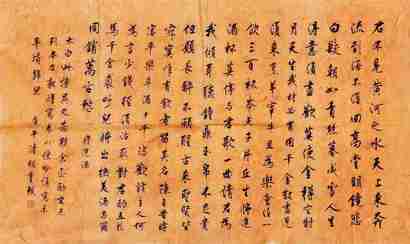 君不見黄河之水天上來奔
流到海不復回高堂明鏡悲
白髮朝如青絲暮成雪人生
得意須盡歡莫使金樽空對
月天生我材必有用千金散盡還
復來烹羊宰牛且為樂會須一
飲三百杯岑夫子丹丘生將進
酒杯莫停與君歌一曲請君為
我傾耳聽鐘鼎玉帛不足貴
但願長醉不願醒古來聖賢皆
寂寞惟有飲者留其名陳王昔時
宴平樂斗酒十千恣歡謔主人何
為言少錢徑須沽取對君酌五花
馬千金裘呼兒將出換美酒與爾
同銷萬古愁 將進酒